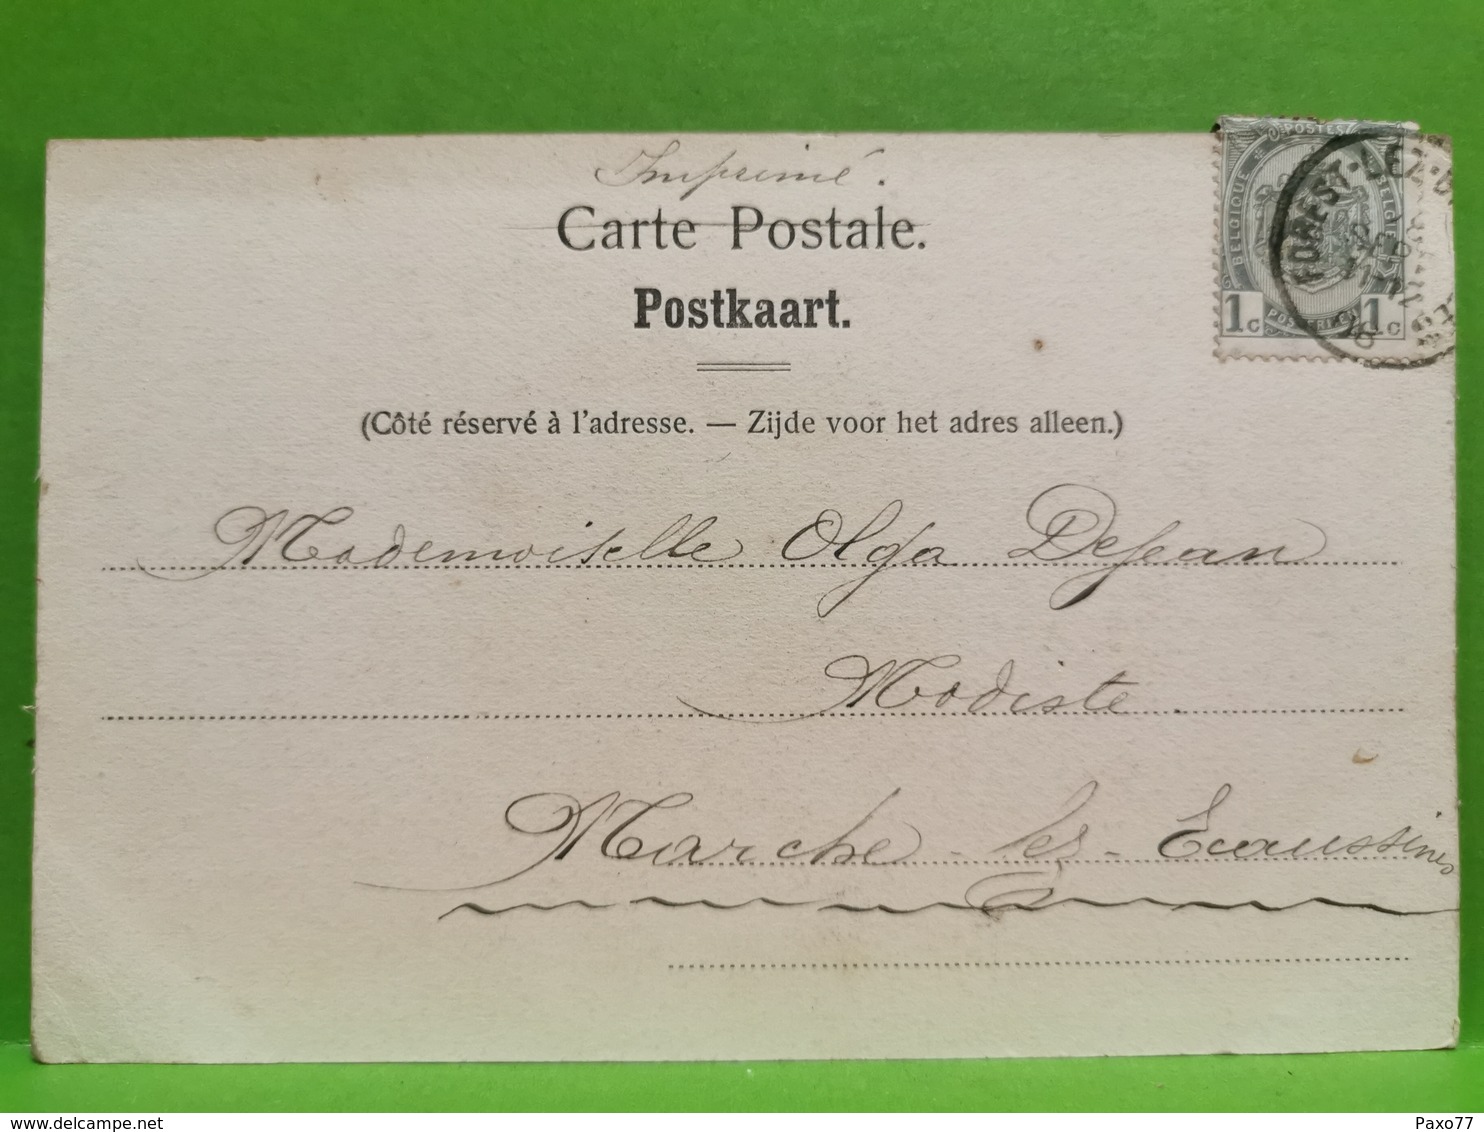 Imprimé.
Carte Postale.
Postkaart.
(Côté réservé à l'adresse. — Zijde voor het adres alleen.)
POSTES
BELGIQUE
BELGIE
1c POSTERIJEN 1c
FOREST-LEZ-B
Mademoiselle Olga Dejean
Modiste.
Marche-les-Ecaussines
Paxo77